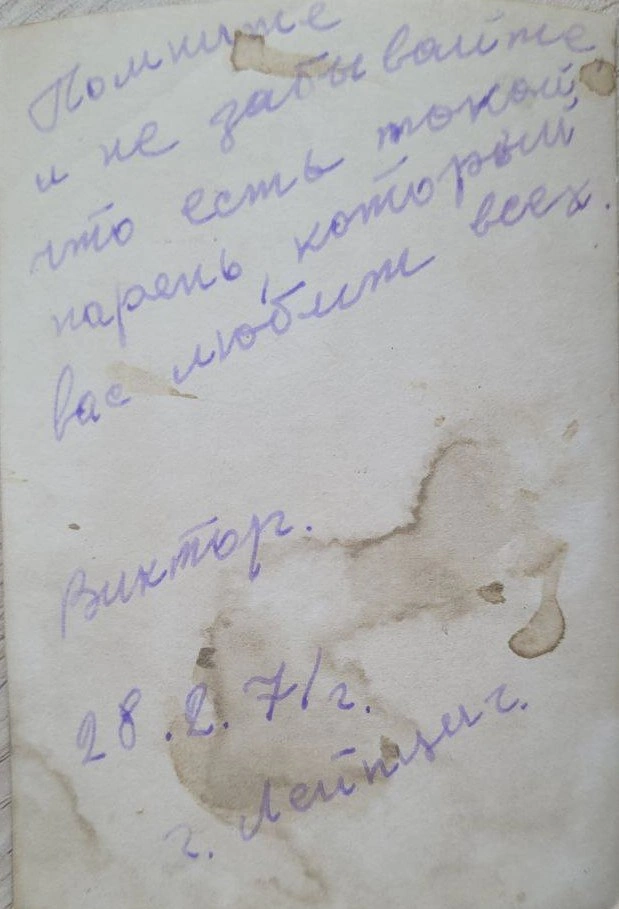 Помните
и не забывайте
что есть такой
парень, который
вас любит всех.
Виктор.
28.2.71г.
г. Лейпциг.